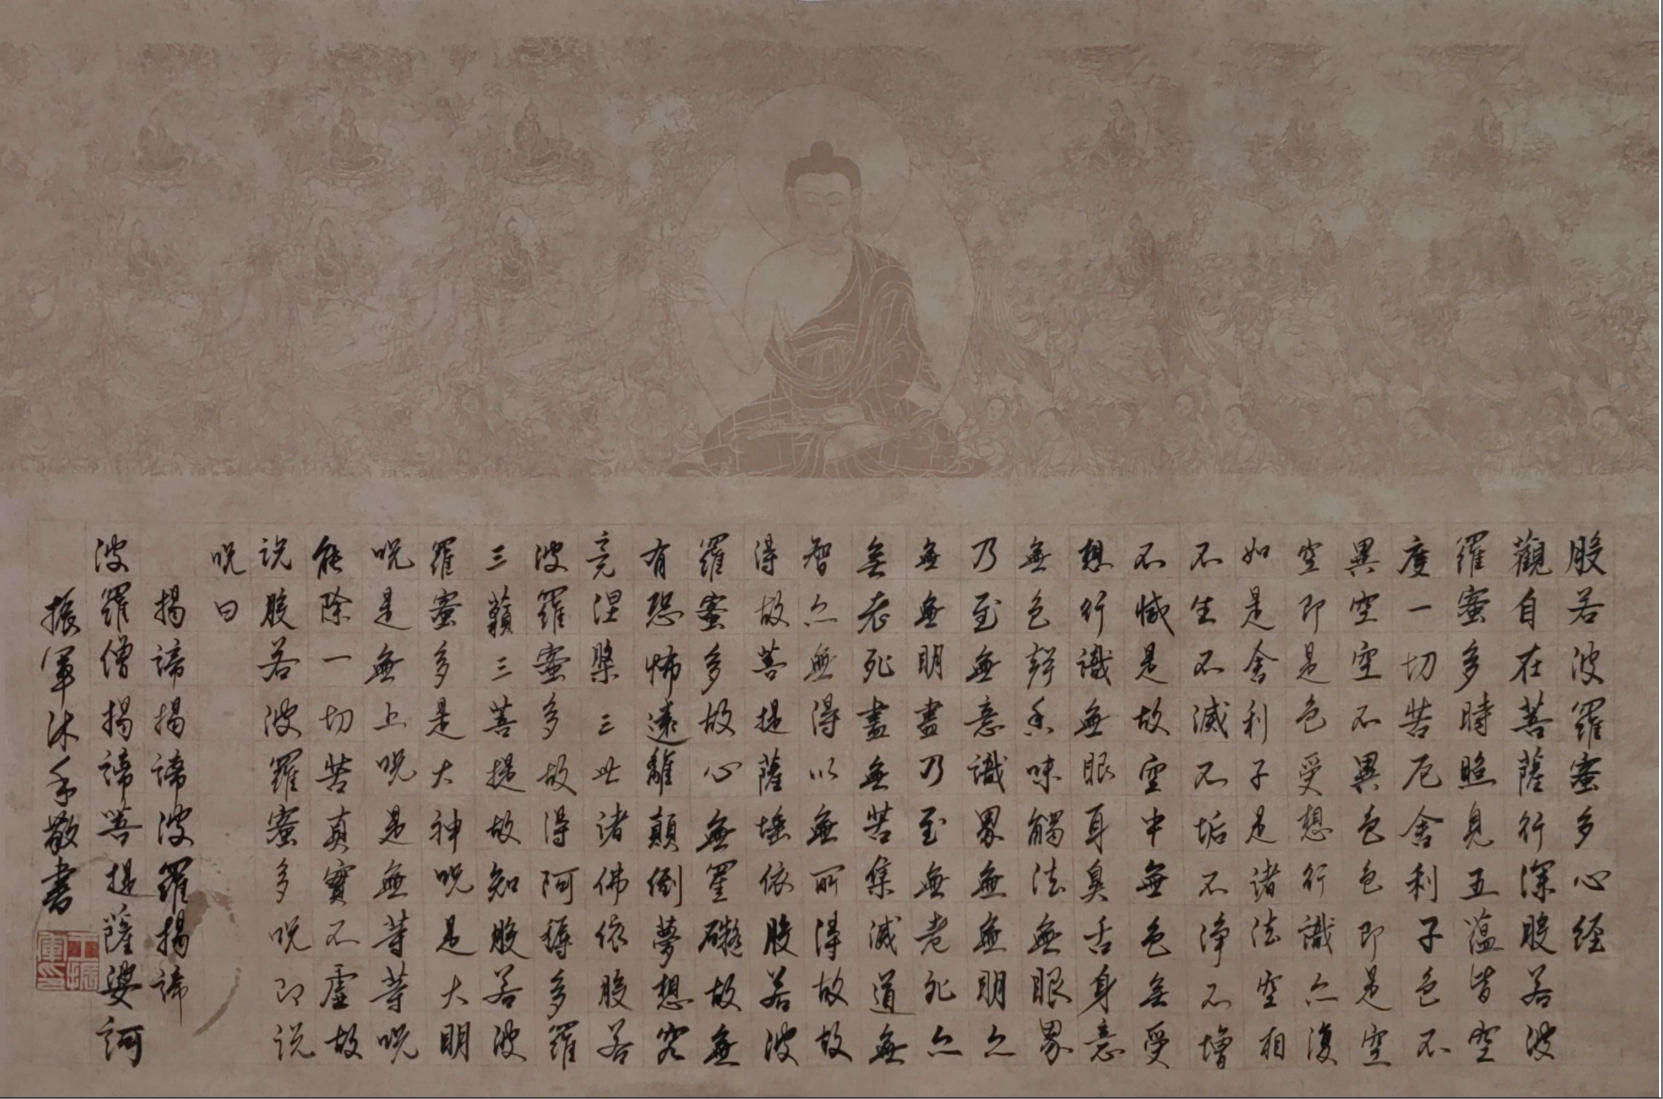 般若波羅蜜多心经
觀自在菩薩行深般若波
羅蜜多時照見五蕴皆空
度一切苦厄舍利子色不
異空空不異色色即是空
空即是色受想行識亦復
如是舍利子是诸法空相
不生不滅不垢不净不增
不減是故空中無色無受
想行識無眼耳鼻舌身意
無色聲香味觸法無眼界
乃至無意識界無無明亦
無無明盡乃至無老死亦
無老死盡無苦集滅道無
智亦無得以無所得故故
得故菩提薩埵依般若波
羅蜜多故心無罣礙故無
有恐怖遠離顛倒夢想究
竟涅槃三世诸佛依般若
波羅蜜多故得阿耨多羅
三藐三菩提故知般若波
羅蜜多是大神呪是大明
呪是無上呪是無等等呪
能除一切苦真實不虛故
说般若波羅蜜多呪即说
呪曰
揭諦揭諦波羅揭諦
波羅僧揭諦菩提薩婆訶
振軍沐手敬書
王振軍印